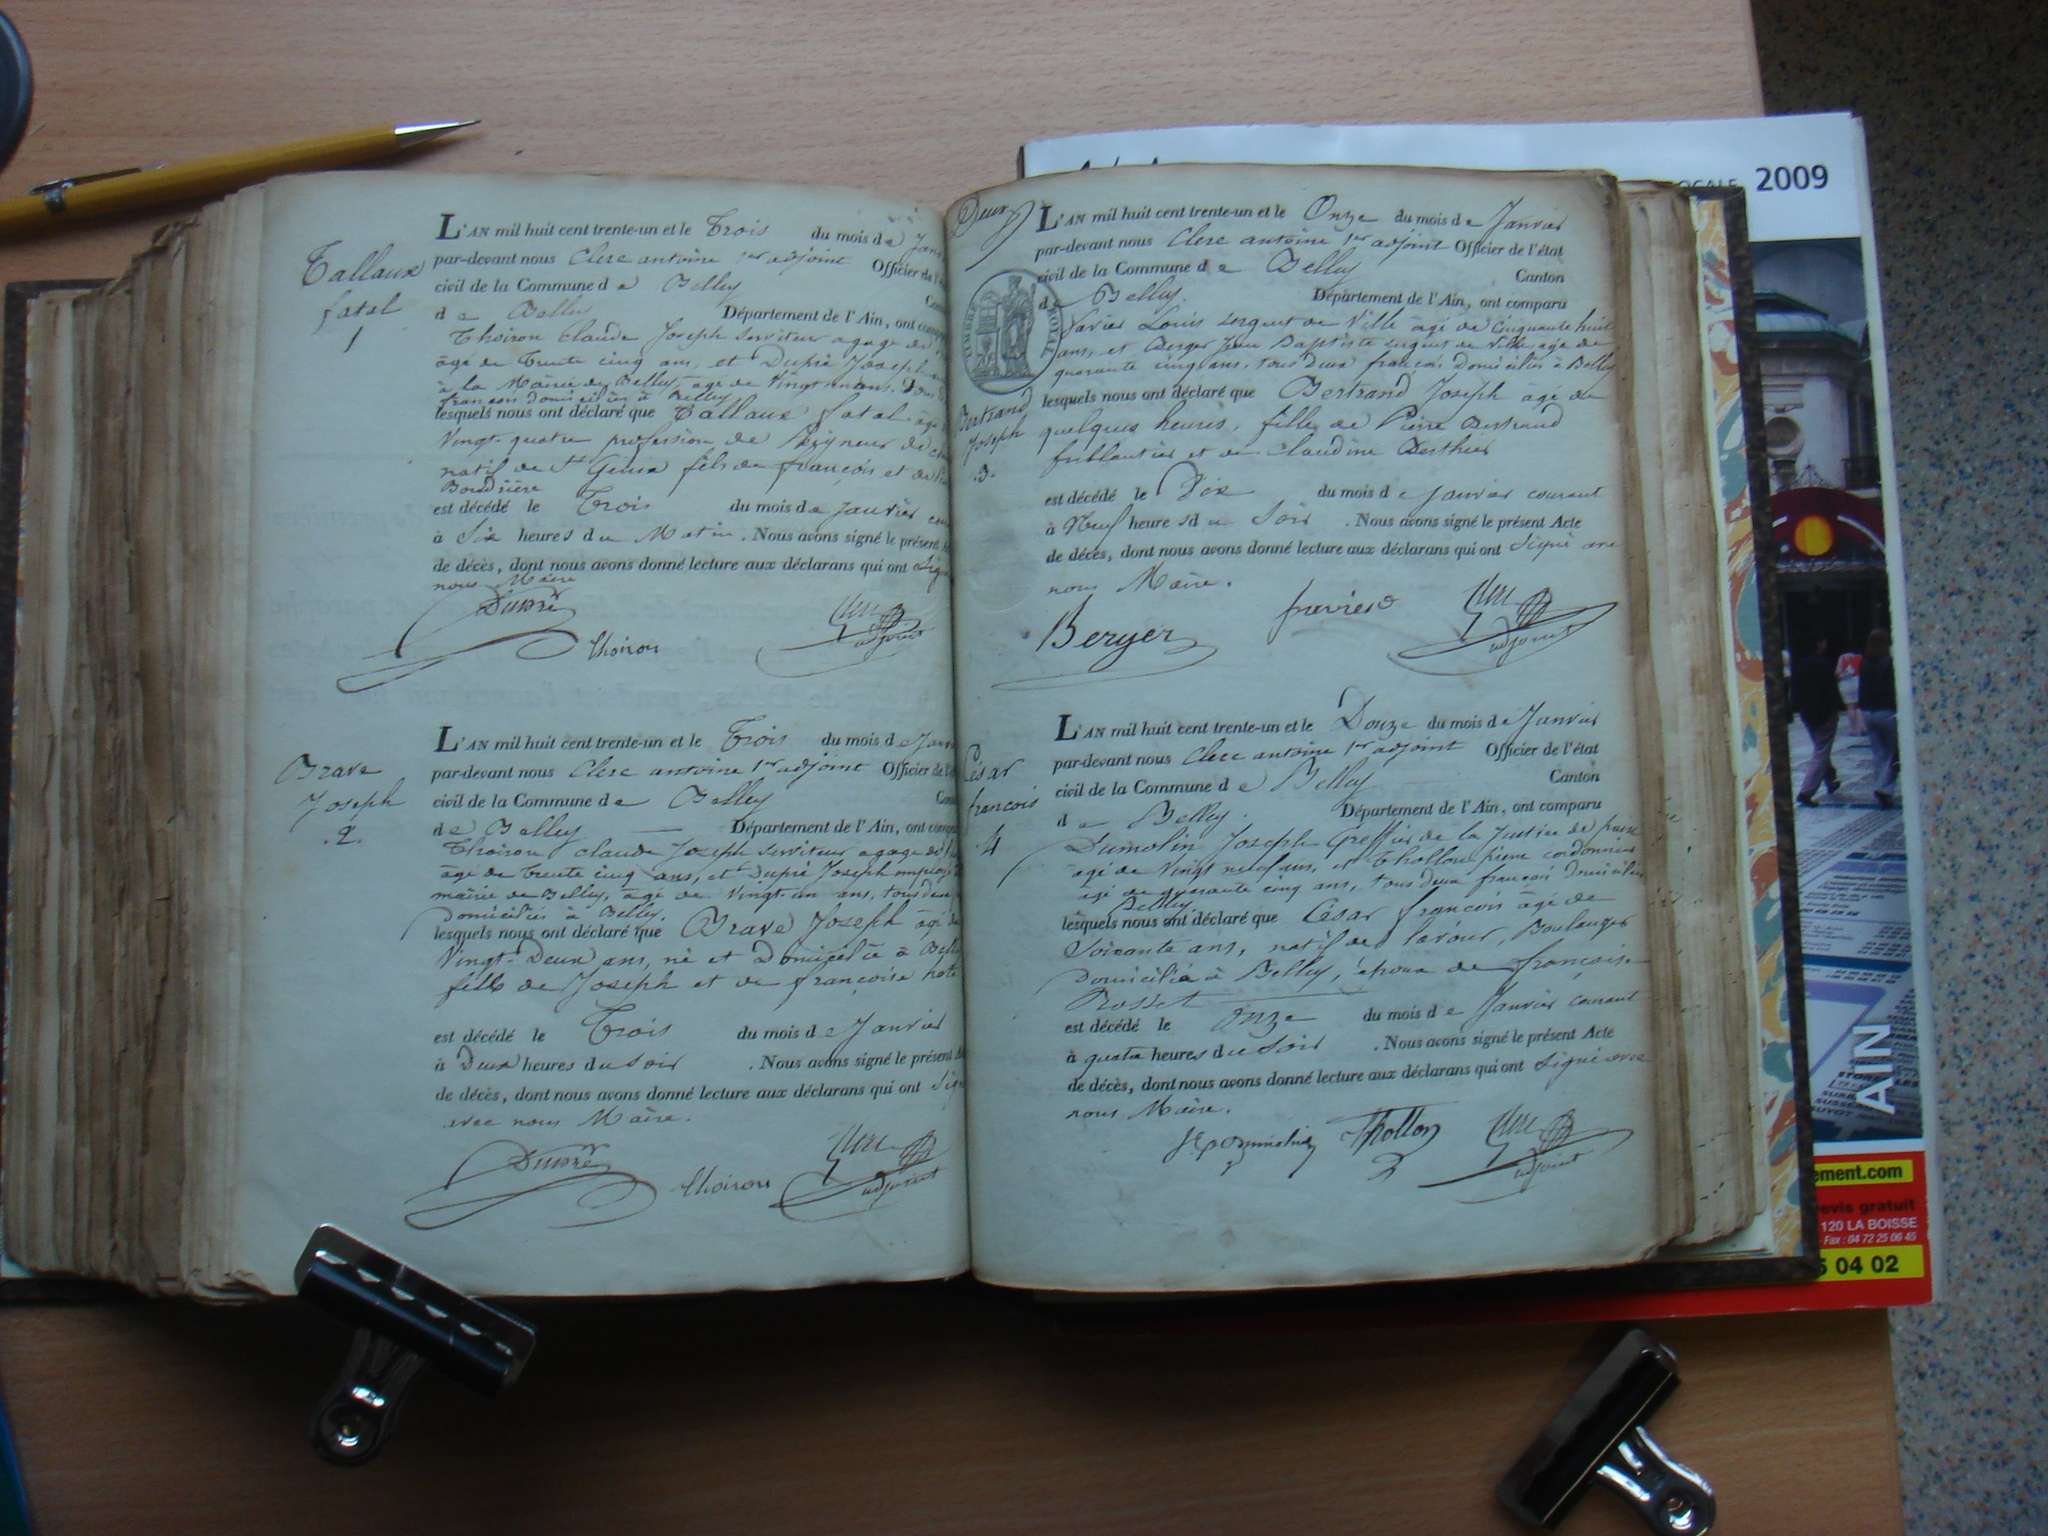 Tallaux
fatal
1
L'AN mil huit cent trente-un et le Trois du mois de Jan
par-devant nous Clerc antoine 1er adjoint Officier de l'é
civil de la Commune de Belley
de Belley Département de l'Ain, ont comp
Thoiron Claude Joseph serviteur a gage de
âgé de trente cinq ans, et Dupré Joseph
à la Mairie de Belley, âgé de Vingt un ans. Tous
français domiciliés à Belley
lesquels nous ont déclaré que Tallaux fatal âgé
Vingt-quatre profession de Peigneur de
natif de St fils de françois et de
est décédé le Trois du mois de janvier
à Six heures du Matin. Nous avons signé le présent
de décès, dont nous avons donné lecture aux déclarans qui ont
nous Maire
Dupré
Thoiron
Clerc
adjoint
Brave
Joseph
.2.
L'AN mil huit cent trente-un et le Trois du mois de Janv
par-devant nous Clerc antoine 1er adjoint Officier de l'
civil de la Commune de Belley
de Belley — Département de l'Ain, ont comp
Thoiron Claude Joseph serviteur a gage de
âgé de trente cinq ans, et Dupré Joseph employé
mairie de Belley, âgé de Vingt-un ans, tous deux
domiciliés à Belley.
lesquels nous ont déclaré que Brave Joseph âgé de
Vingt-Deux ans, né et Domicilié à Belley
fils de Joseph et de françoise
est décédé le Trois du mois de Janvier
à Deux heures du Soir. Nous avons signé le présent
de décès, dont nous avons donné lecture aux déclarans qui ont Sign
avec nous Maire.
Dupré
Thoiron
Clerc
adjoint
Deux
TIMBRE ROYAL
Bertrand
Joseph
.3.
L'AN mil huit cent trente-un et le Onze du mois de Janvier
par-devant nous Clerc antoine 1er adjoint Officier de l'état
civil de la Commune de Belley Canton
de Belley. Département de l'Ain, ont comparu
Louis sergent de Ville âgé de Cinquante huit
ans, et Berger Jean Baptiste sergent de Ville âgé de
quarante cinq ans, tous deux français domiciliés à Belley
lesquels nous ont déclaré que Bertrand Joseph âgé de
quelques heures, fils de Pierre Bertrand
ferblantier et de Claudine Berthier
est décédé le Dix du mois de Janvier courant
à Neuf heures du Soir. Nous avons signé le présent Acte
de décès, dont nous avons donné lecture aux déclarans qui ont Signé avec
nous Maire.
Berger
Clerc
adjoint
César
françois
4
L'AN mil huit cent trente-un et le Douze du mois de Janvier
par-devant nous Clerc antoine 1er adjoint Officier de l'état
civil de la Commune de Belley Canton
de Belley. Département de l'Ain, ont comparu
Dumolin Joseph Greffier de la Justice de paix
âgé de Vingt neuf ans, et Thollon pierre cordonnier
âgé de quarante cinq ans, tous deux français domiciliés
Belley
lesquels nous ont déclaré que César françois âgé de
Soixante ans, natif de lavour, Boulanger
Domicilié à Belley, époux de françoise
Rosset
est décédé le Onze du mois de Janvier courant
à quatre heures du Soir. Nous avons signé le présent Acte
de décès, dont nous avons donné lecture aux déclarans qui ont Signé avec
nous Maire.
Thollon
Clerc
adjoint
2009
AIN
ement.com
evis gratuit
120 LA BOISSE
Fax : 04 72 25 06 45
5 04 02